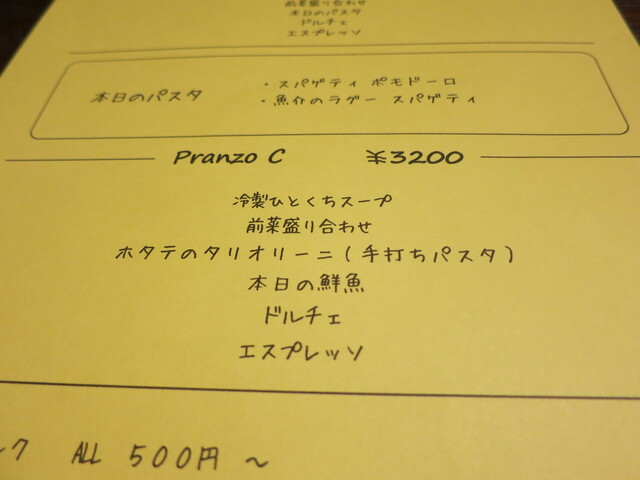 前菜盛り合わせ
本日のパスタ
ドルチェ
エスプレッソ
本日のパスタ
・スパゲティ ポモドーロ
・魚介のラグー スパゲティ
Pranzo C ¥3200
冷製ひとくちスープ
前菜盛り合わせ
ホタテのタリオリーニ(手打ちパスタ)
本日の鮮魚
ドルチェ
エスプレッソ
ALL 500円 〜